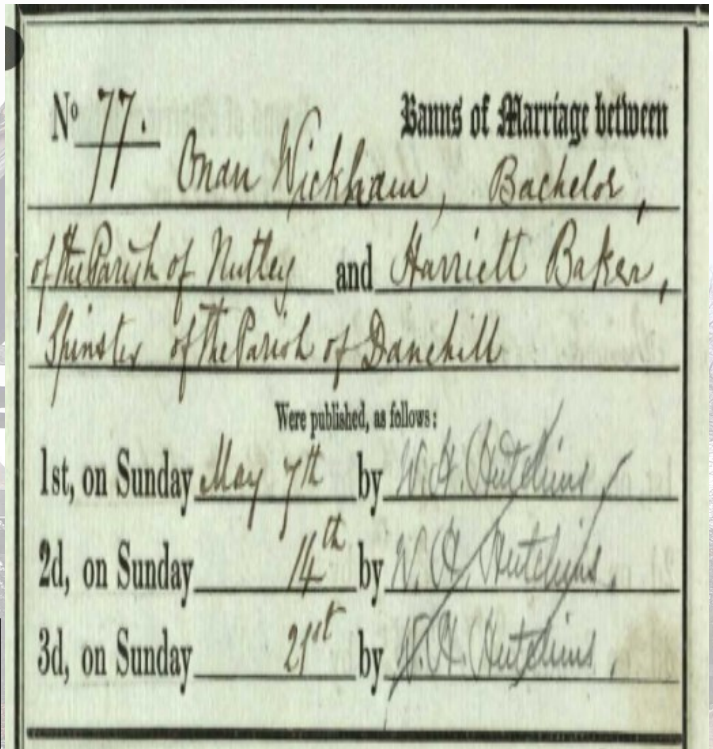 No 77. Banns of Marriage between
Onan Wickham, Bachelor,
of the Parish of Nutley and Harriett Baker,
Spinster of the Parish of Danehill
Were published, as follows:
1st, on Sunday May 7th by W. H. Hutchins,
2d, on Sunday 14th by W. H. Hutchins,
3d, on Sunday 21st by W. H. Hutchins,